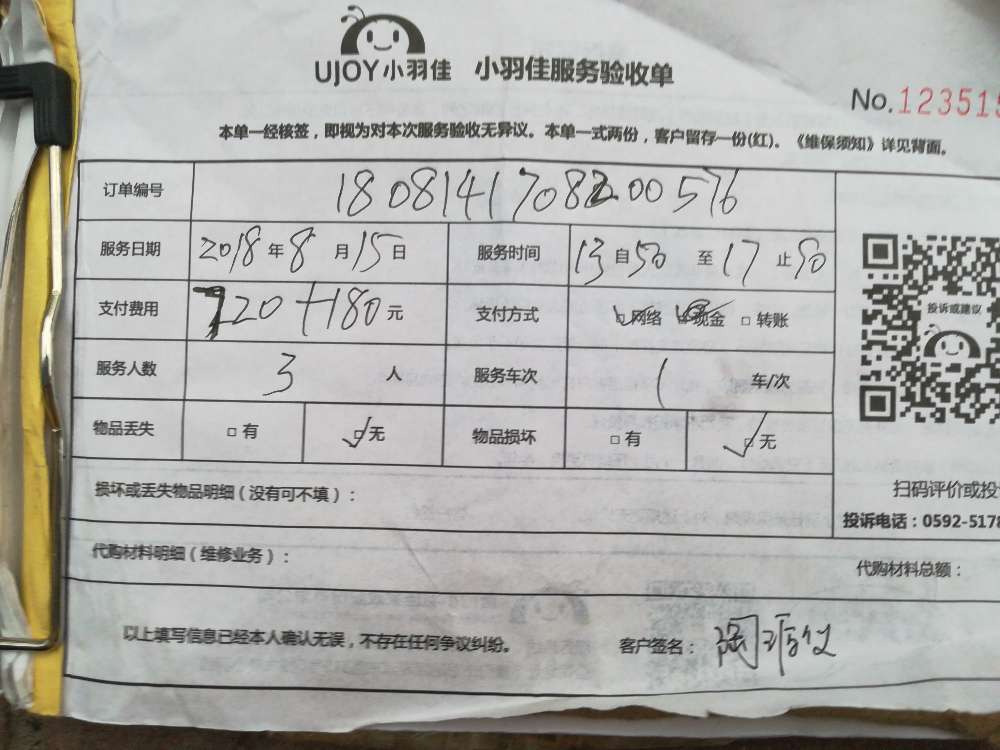 UJOY小羽佳 小羽佳服务验收单
No.123515
本单一经核签，即视为对本次服务验收无异议。本单一式两份，客户留存一份(红)。《维保须知》详见背面。
订单编号 18081417082200576
服务日期 2018年8月15日 服务时间 13自50至17止50
支付费用 720+180元 支付方式 ☑网络 现金 □转账
投诉或建议
服务人数 3人 服务车次 1车/次
物品丢失 □有 ☑无 物品损坏 □有 ☑无
损坏或丢失物品明细（没有可不填）：
扫码评价或投
投诉电话：0592-5178
代购材料明细（维修业务）：
代购材料总额：
以上填写信息已经本人确认无误，不存在任何争议纠纷。 客户签名：